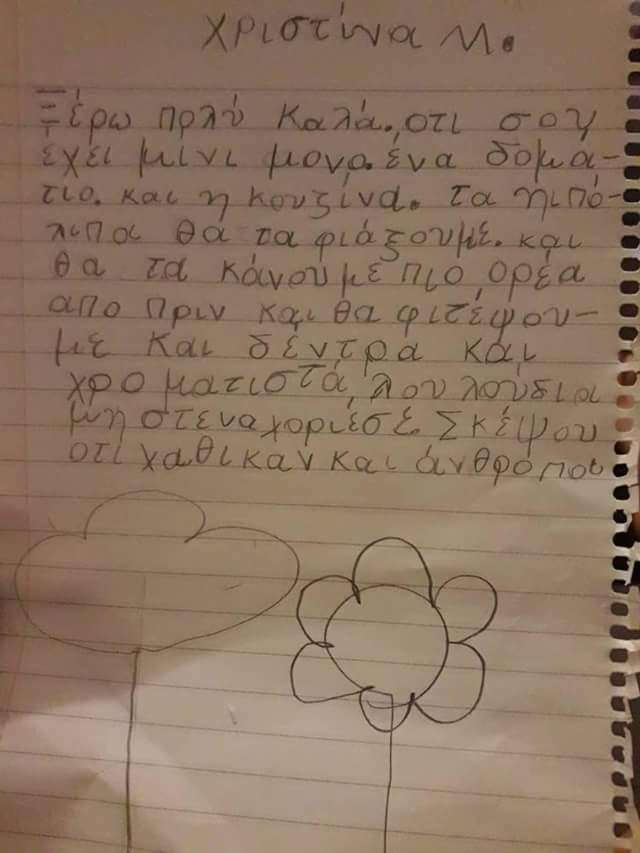 χριστίνα Μ.
Ξέρω πολύ καλά. οτι σου
έχει μίνι μονο. ένα δομά-
τιο. και η κουζίνα. τα ηπό-
λιπα θα τα φιάξουμε. και
θα τα κάνουμε πιο ορέα
απο πριν και θα φιτέψου-
με και δέντρα και
χροματιστά λουλούδια
μη στεναχοριέσε. Σκέψου
οτι χαθικαν και άνθροποι